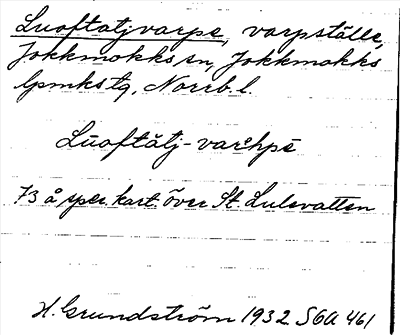 Luoftatjvarpe, varpställe,
Jokkmokks sn, Jokkmokks
lpmkstg, Norrb. l.
Lūoftătj-vaŕhpē
73 å spec. kart. över St. Lulevatten
H. Grundström 1932 SOA 461